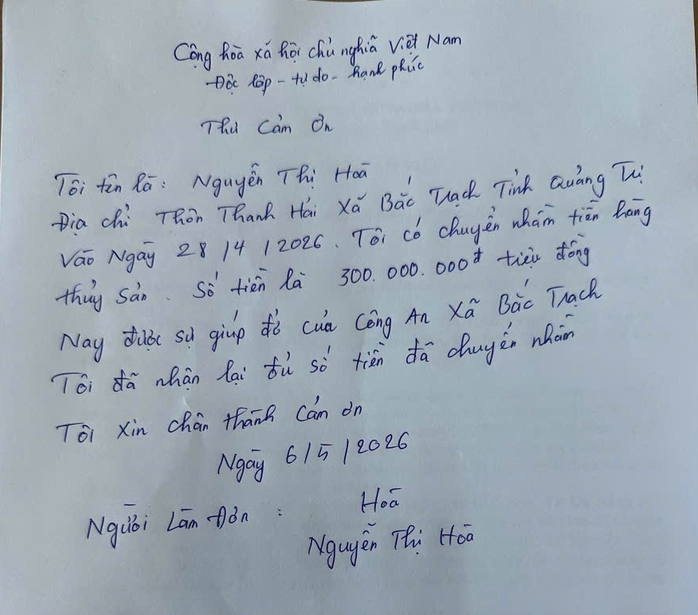 Cộng hòa xá hội chủ nghĩa Việt Nam
Độc lập - tự do - hạnh phúc
Thư Cảm Ơn
Tôi tên là: Nguyễn Thị Hoà
Địa chỉ Thôn Thanh Hải Xã Bắc Trạch Tỉnh Quảng Trị
Vào Ngày 28/4/2026. Tôi có chuyển nhầm tiền hàng
thủy sản. Số tiền là 300.000.000đ triệu đồng
Nay được sự giúp đỡ của Công An Xã Bắc Trạch
Tôi đã nhận lại đủ số tiền đã chuyển nhầm
Tôi xin chân thành Cảm ơn
Ngày 6/5/2026
Người Làm Đơn : Hoà
Nguyễn Thị Hoà